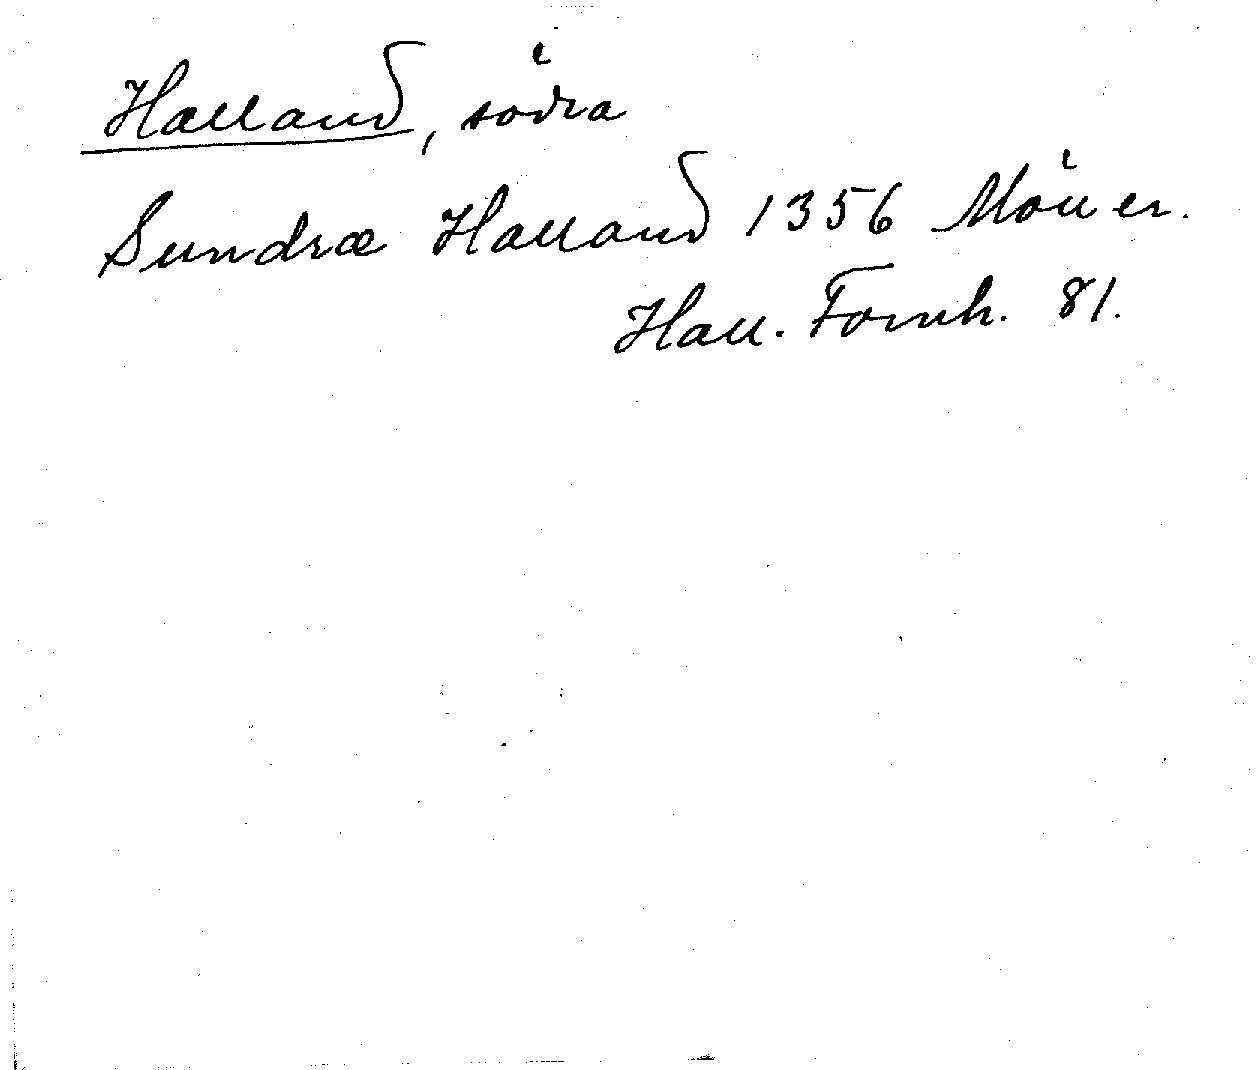 Halland, södra
Sundræ Halland 1356 Möller.
Hall. Fornh. 81.